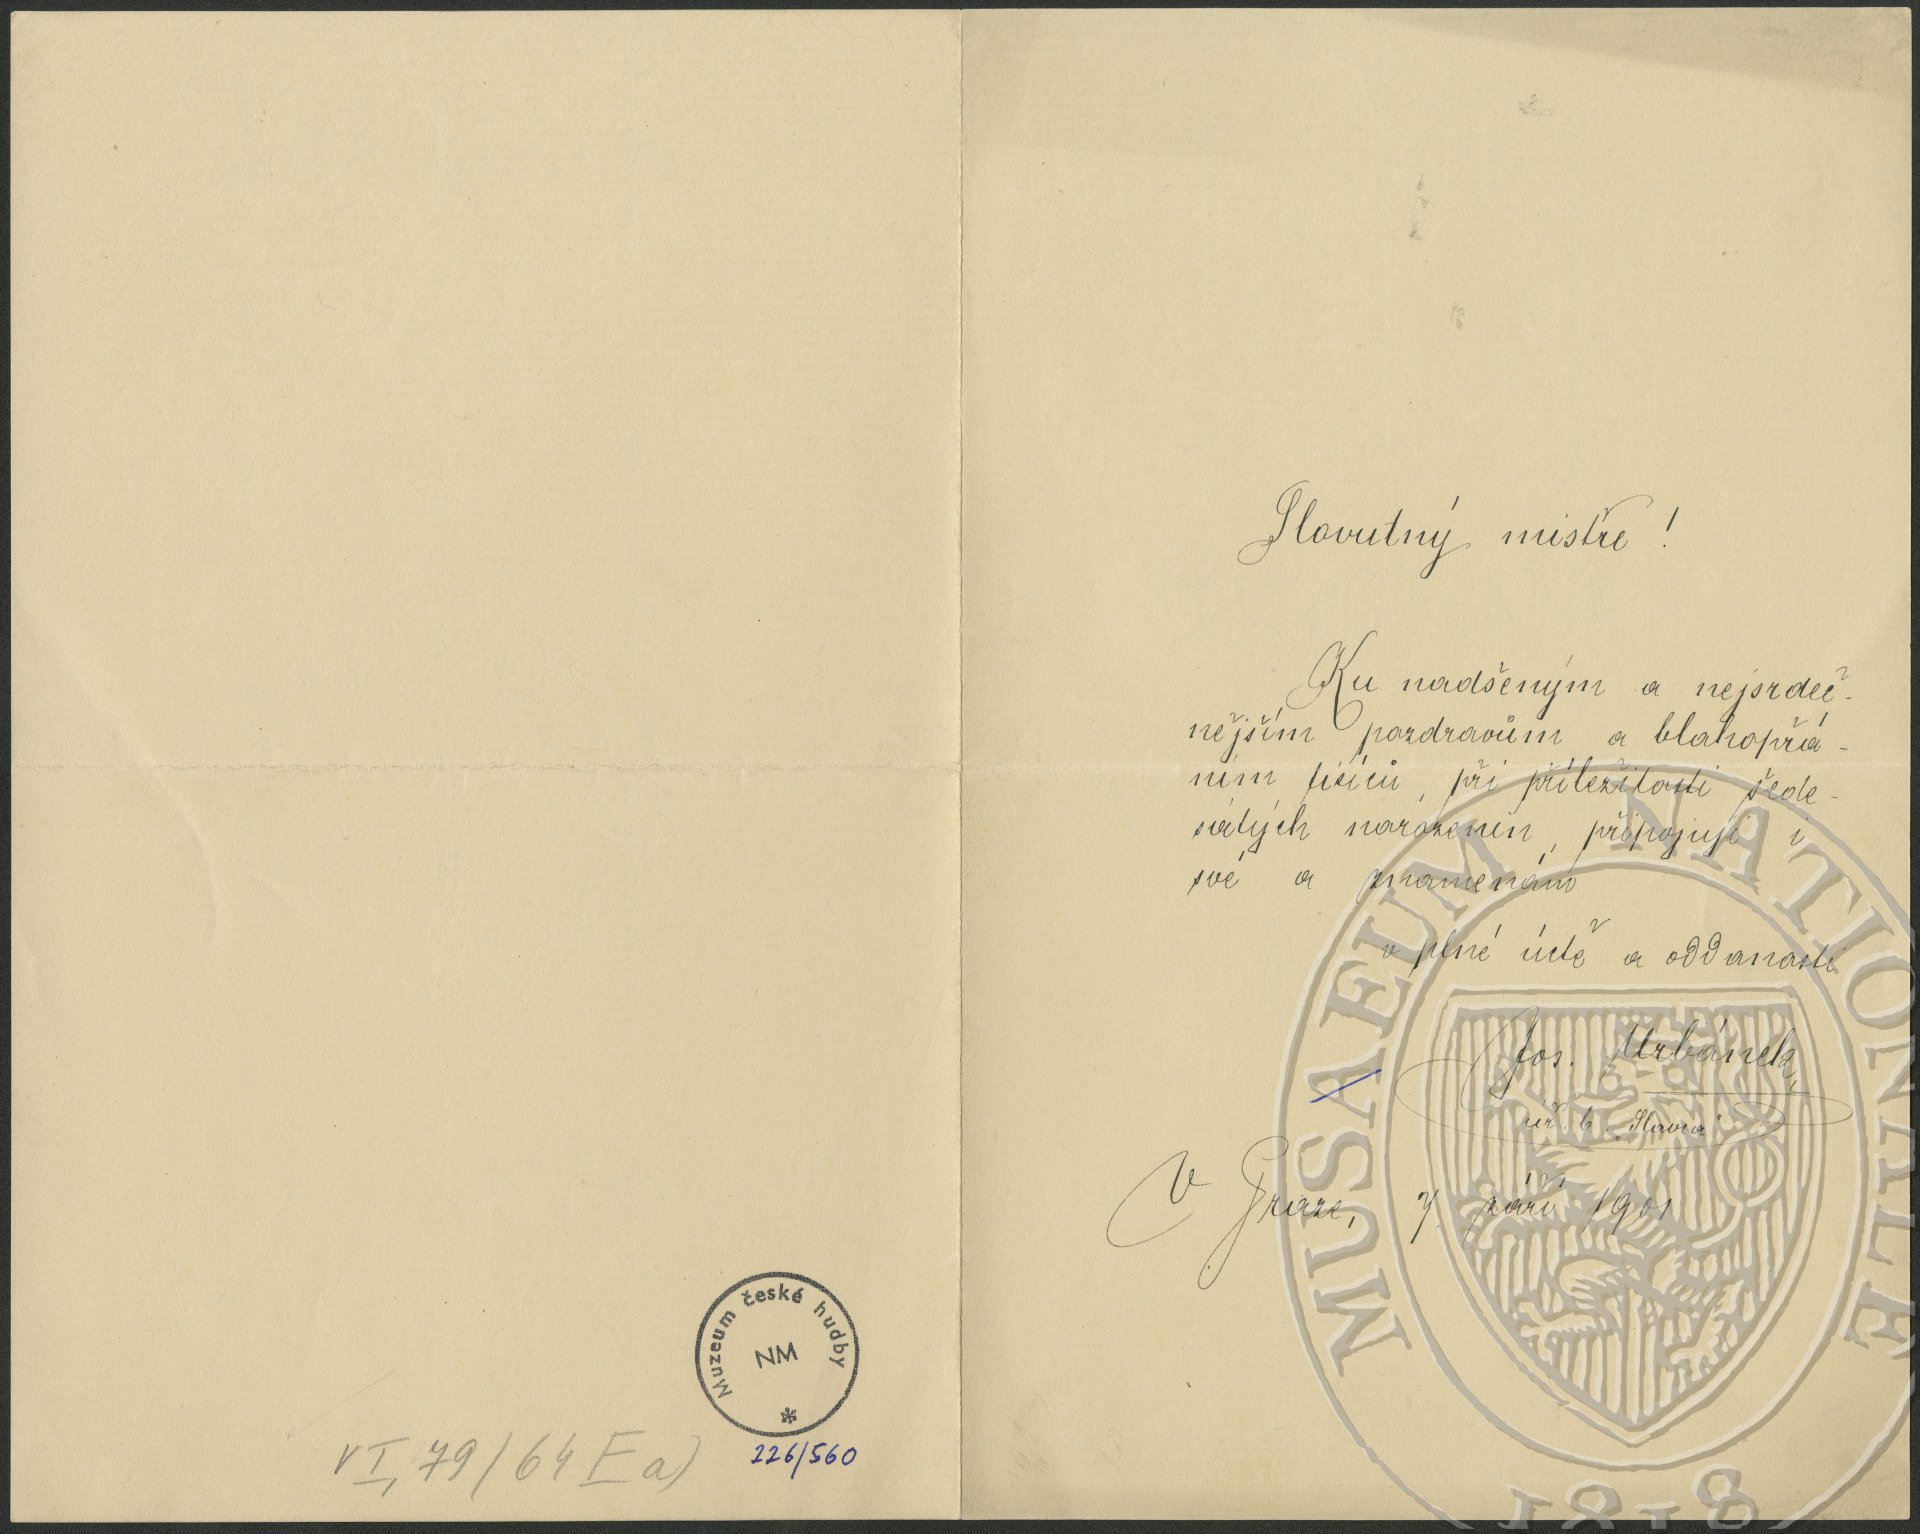 Slavutný mistře !
Ku nadšeným a nejsrdeč-
nějším pozdravům a blahopřá-
ním tisíců, při příležitosti šede-
sátých narozenin, připojuji i
své a znamenám
v plné úctě a oddanosti
Jos. Urbánek,
úř. b. „Slavia"
V Praze, 7. září 1901
Muzeum české hudby
NM
226/560
VI, 79/64 Ea)
MUSAEUM NATIONALE
1818